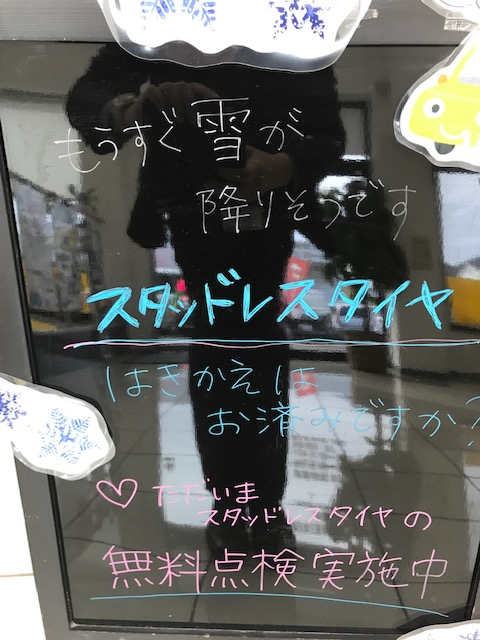 もうすぐ雪が
降りそうです
スタッドレスタイヤ
はきかえは
お済みですか?
♡ただいま
スタッドレスタイヤの
無料点検実施中